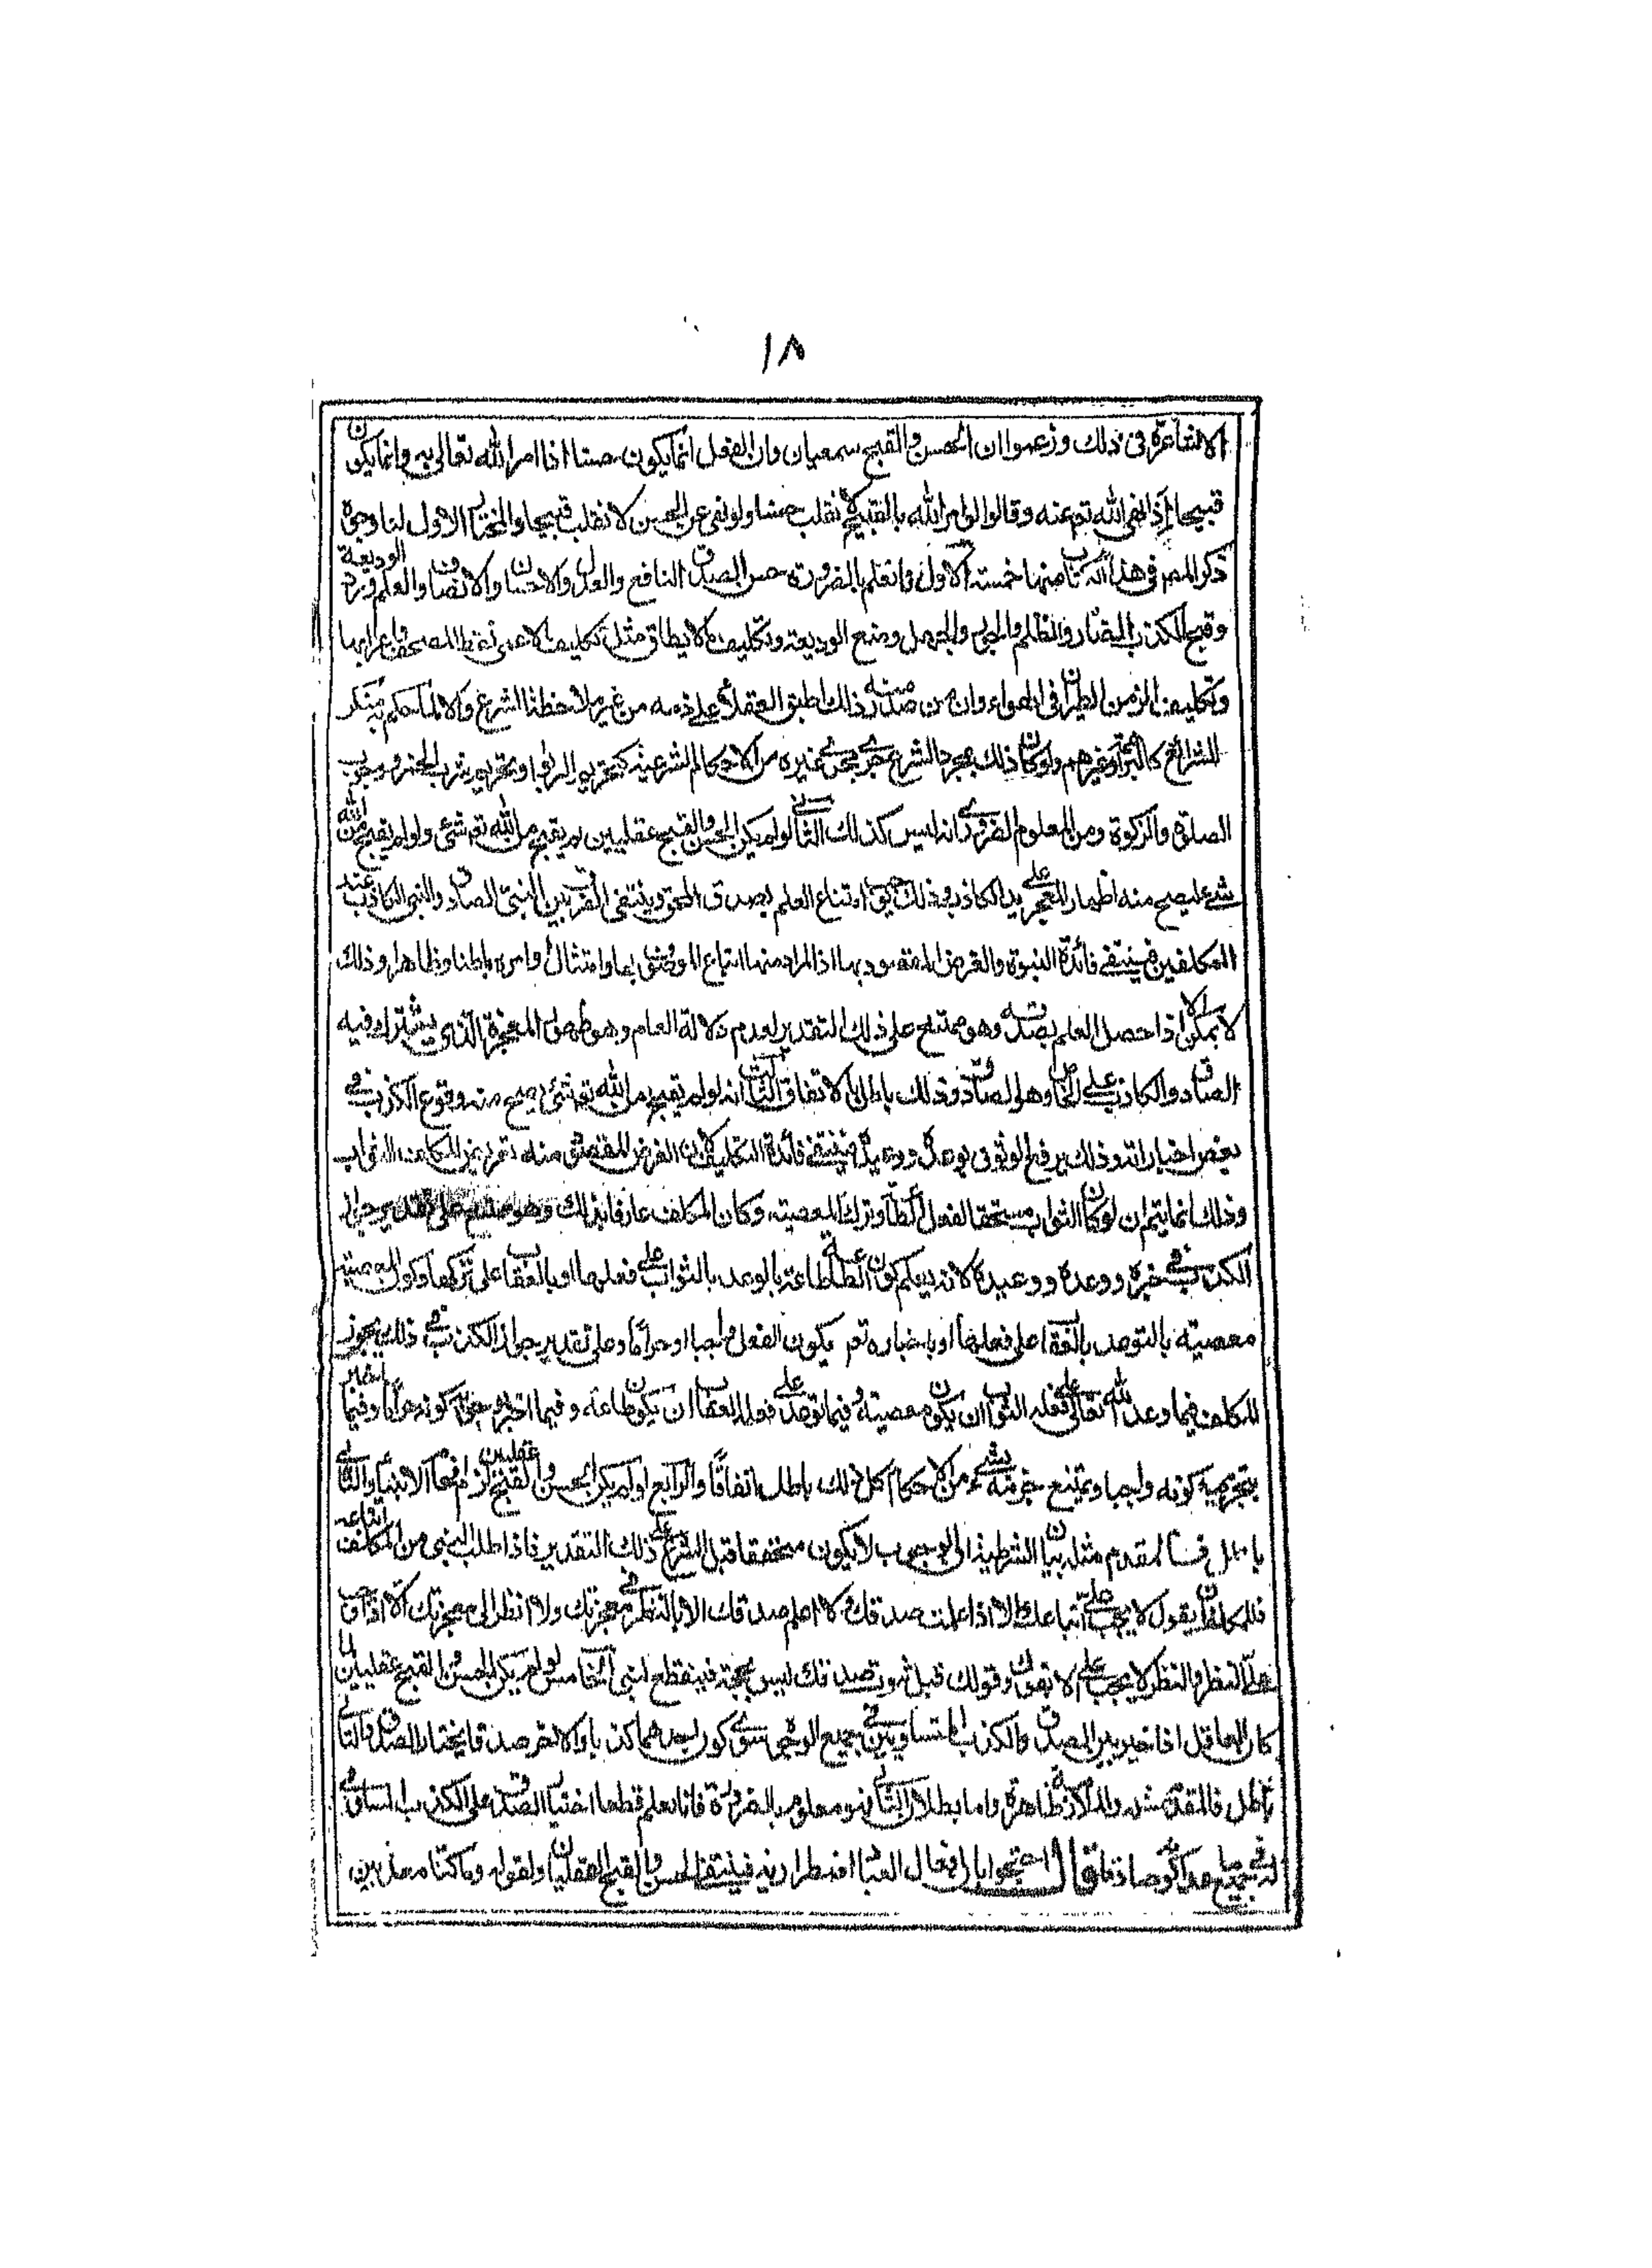 ١٨
الاشاعرة فى ذلك وزعموا ان الحسن والقبح سمعيان وان الفعل انما يكون حسنا اذا امر الله تعالى به وانما يكون
قبيحا اذا نهى الله تع عنه وقالوا لو امر الله بالقبيح لانقلب حسنا ولو نهى عن الحسن لانقلب قبيحا والمختار الاول لنا وجوه
ذكر المصر فى هذا الكتاب منها خمسة الاول انا نعلم بالضرورة حسن الصدق النافع والعدل والاحسان والانصاف والعلم ورد الوديعة
وقبح الكذب الضار والظلم والجور والجهل ومنع الوديعة وتكليف ما لا يطاق مثل تكليف الاعمى نقط المصحف واعرابها
وتكليف الزمن الطيران فى الهواء وان من صدر منه ذلك اطبق العقلاء على ذمه من غير ملاحظة الشرع ولا لما حكم به منكر
الشرائع كالبراهمة وغيرهم ولو كان ذلك بمجرد الشرع لجرى مجرى غيره من الاحكام الشرعية كتحريم الربا وتحريم شرب الخمر ووجوب
الصلوة والزكوة ومن المعلوم الضرورى انه ليس كذلك الثانى لو لم يكن الحسن والقبح عقليين لم يقبح من الله تع شئ ولو لم يقبح من الله
شئ لصح منه اظهار المعجز على يد الكاذب وذلك امتناع العلم بصدق المحق وينتفى الفرق بين النبى الصادق والنبى الكاذب عند
المكلفين فينتفى فائدة النبوة والغرض المقصود بها اذ المراد منها اتباع الموثوق بها وامتثال اوامره باطنا وظاهرا وذلك
لا يمكن الا اذا حصل العلم بصدقه وهو ممتنع على ذلك التقدير لعدم دلالة العام وهو ظهور المعجزة الذى يشترك فيه
الصادق والكاذب على الخاص وهو الصادق وذلك باطل بالاتفاق الثالث انه لو لم يقبح من الله تع شئ يصح منه وقوع الكذب فى
بعض اخباراته وذلك يرفع الوثوق بوعده ووعيده فينتفى فائدة التكليف لان الغرض المقصود منه تعريض المكلف الثواب
وذلك انما يتم ان لو كان الثواب مستحقا لفعل الطاعة وترك المعصية وكان المكلف عارفا بذلك وهو ممتنع على تقدير جواز
الكذب فى خبره ووعده ووعيده لانه يعلم كون الطاعة طاعة بالوعد بالثواب على فعلها او بالعقاب على تركها وكون المعصية
معصية بالتوعد بالعقاب على فعلها او باخباره تع يكون الفعل واجبا او حراما وعلى تقدير جواز الكذب فى ذلك يجوز
للمكلف فيما وعد الله تعالى على فعله الثواب ان يكون معصية وفيما توعد على فعله العقاب ان يكون طاعة وفيما اخبر بوجوبه كونه حراما وفيما اخبر
بتحريمه كونه واجبا ويمتنع جزمه بشئ من الاحكام كل ذلك باطل اتفاقا والرابع لو لم يكن الحسن والقبح عقليين لزم افحام الانبياء والتالى
باطل فالمقدم مثله بيان الشرطية ان الوجوب لا يكون متحققا قبل الشرع على ذلك التقدير فاذا طلب النبى من المكلف اتباعه
فللمكلف ان يقول لا يجب على اتباعك الا اذا علمت صدقك ولا اعلم صدقك الا بالنظر فى معجزتك ولا انظر الى معجزتك الا اذا وجب
على النظر والنظر لا يجب على الا بقولك وقولك قبل ثبوت صدقك ليس بحجة فينقطع النبى الخامس لو لم يكن الحسن والقبح عقليين لما
كان العاقل اذا خير بين الصدق والكذب المتساويين فى جميع الوجوه سوى كون احدهما كذبا والاخر صدقا يختار الصدق والتالى
باطل فالمقدم مثله والملازمة ظاهرة واما بطلان التالى فهو معلوم بالضرورة فانا نعلم قطعا اختيار الصدق على الكذب المساوى
له فى جميع ما عدا كونه صادقا قال احتجوا بان افعال العباد اضطرارية فينتفى الحسن والقبح العقليان ولقوله وما كنا معذبين